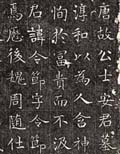 唐故公士安君墓
淳和以為人含神
恂於富貴而不汲
君諱令節字令節
焉歷後魏周隨仕